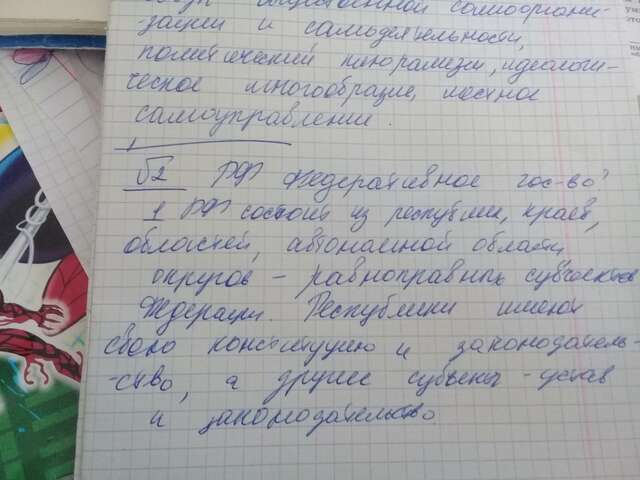 общественной самооргани-
зации и самодеятельности,
политический плюрализм, идеологи-
ческое многообразие, местное
самоуправлении.
§2 РФ Федеративное гос-во?
1 РФ состоит из республик, краёв,
областей, автономной области
округов – равноправных субъектов
Федерации. Республики имеют
свою конституцию и законодатель-
-ство, а другие субъекты - устав
и законодательство